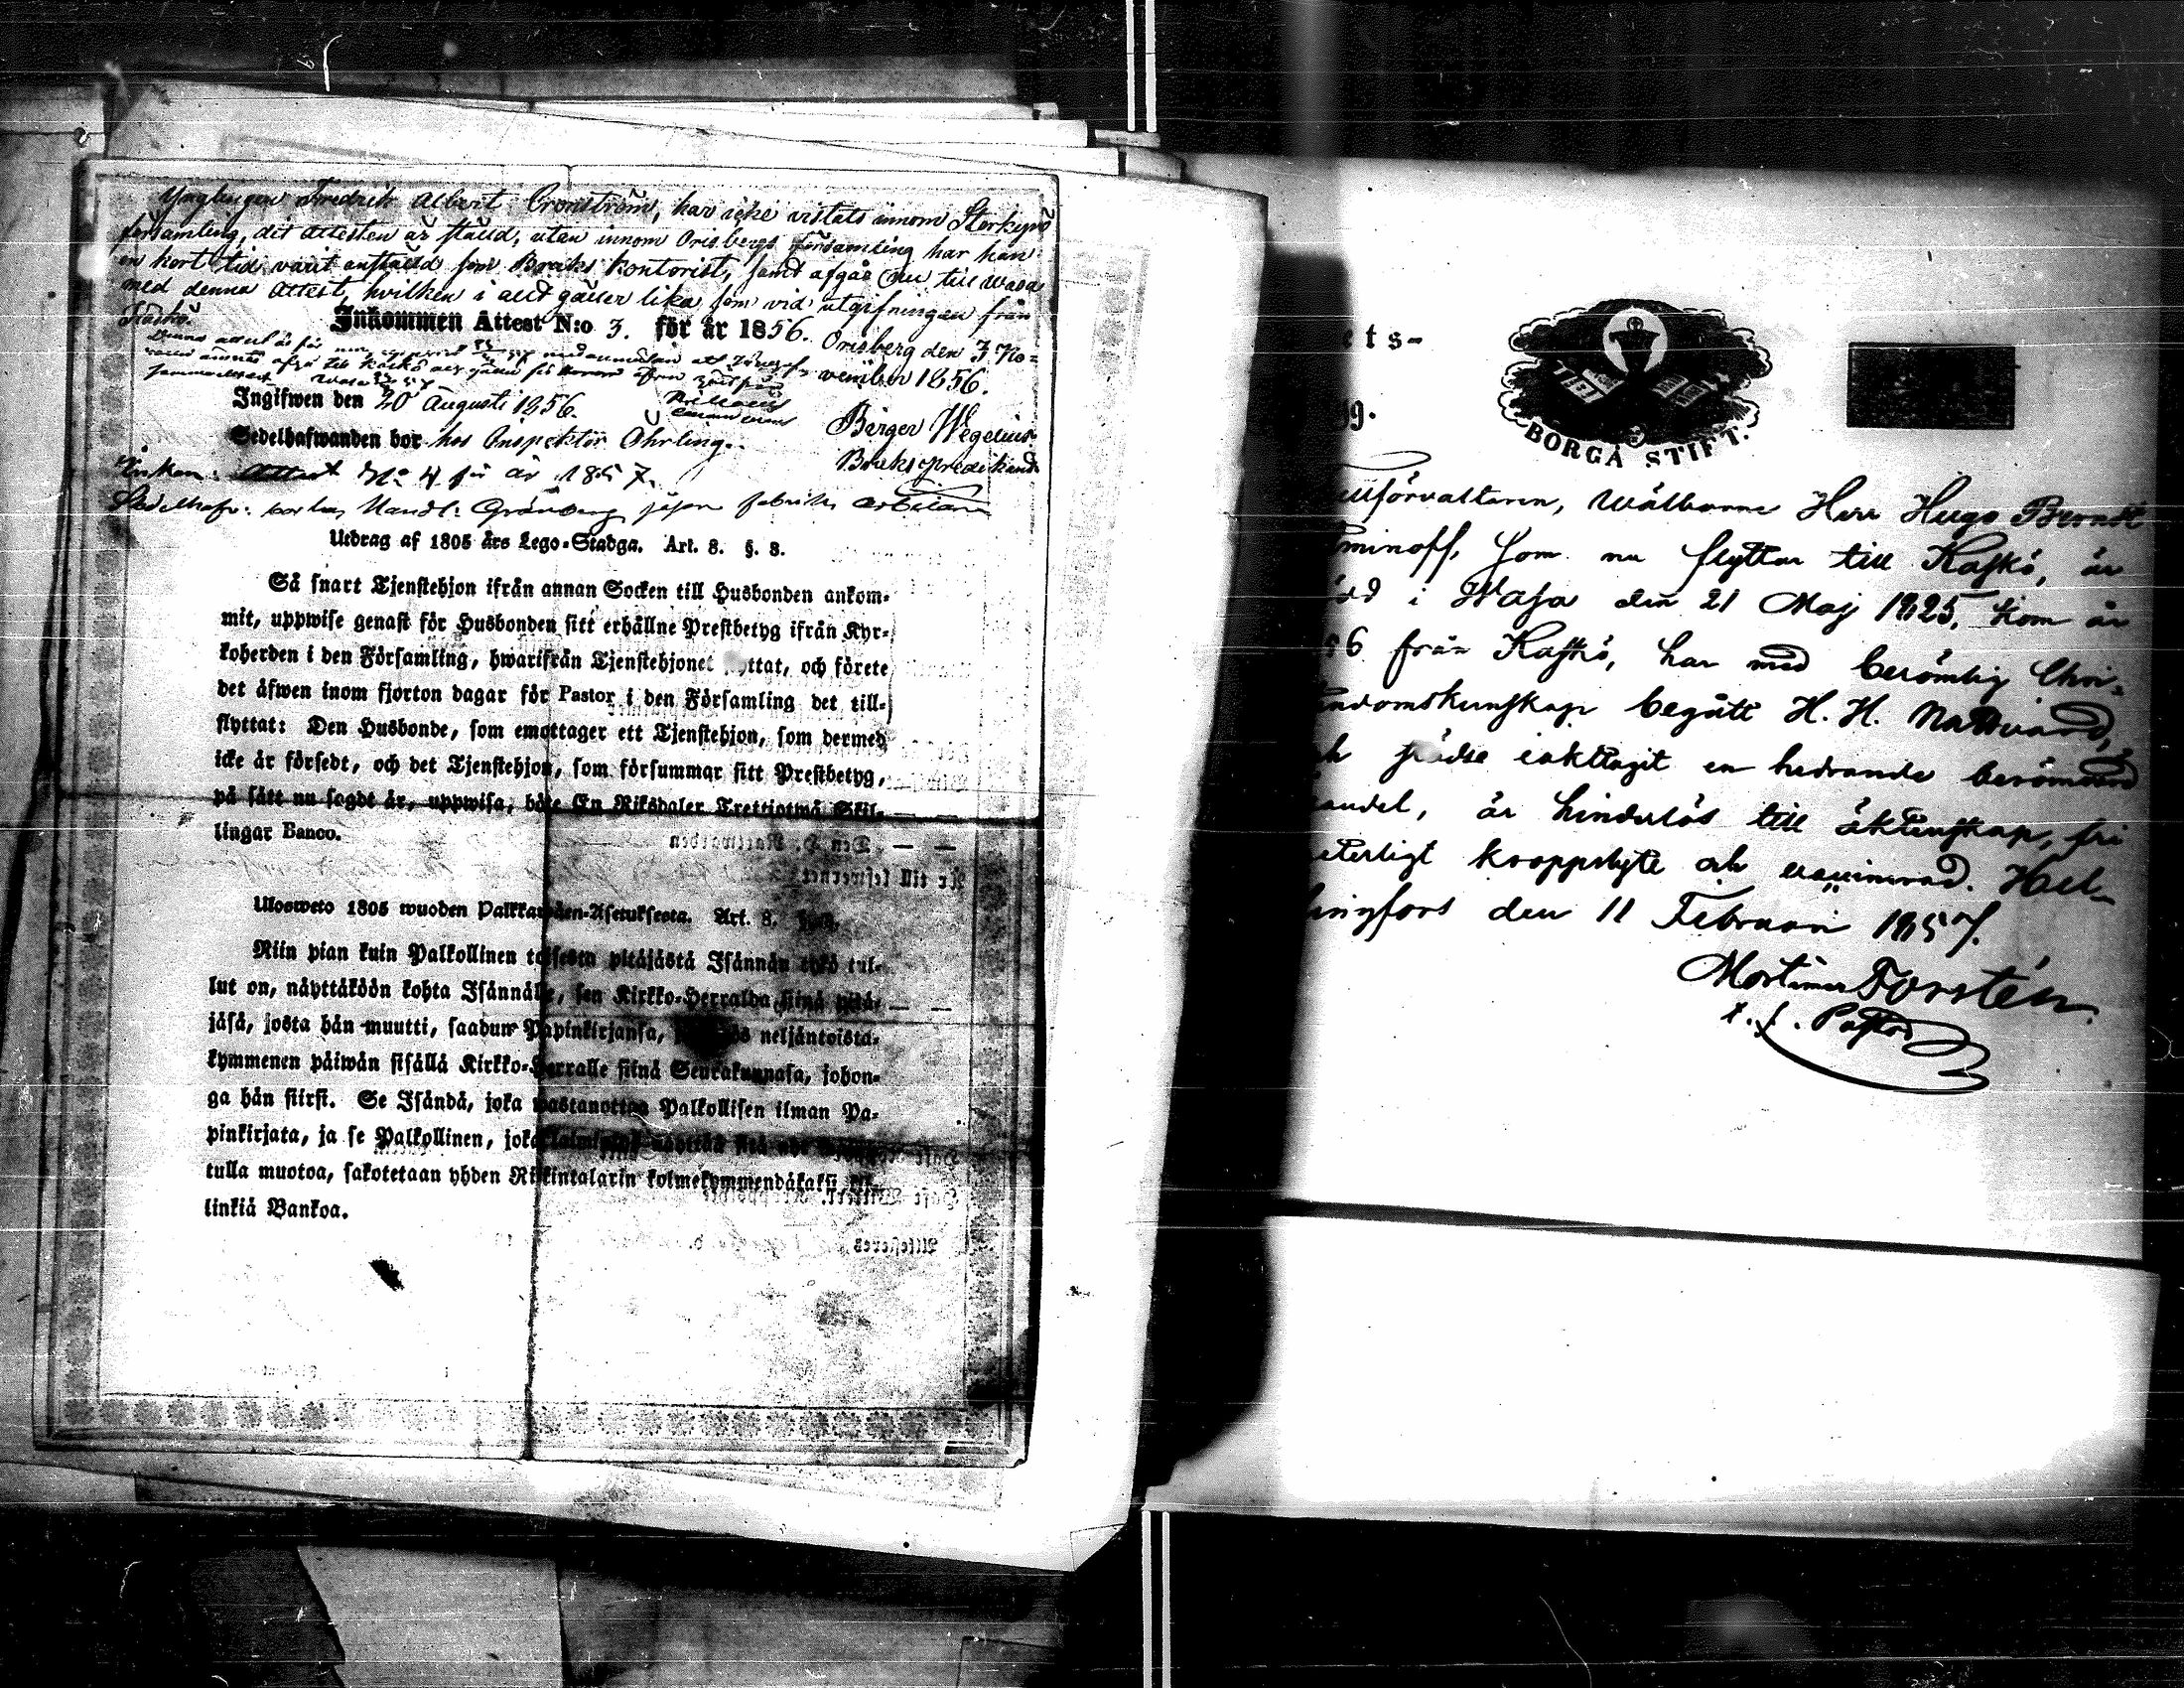 Ynglingen Fredrik Albert Cronström, har icke vistats innom Storkyro
församling, dit attesten är ställd, utan innom Orisbergs församling har han
en kort tid varit anställd som Bruks Kontorist, samt afgår nu till Wasa
med denna Attest, hvilken i allt gäller lika som vid utgifningen från
Inkommen Attest N:o 3. för år 1856.
Orisberg den 3 No=
vember 1856.
Birger Wegelius.
Brukspredikand
Ingifwen den 20 Augusti 1856.
Sedelhafwanden bor hos Inspektor Öhrling.
Attest No 4 för år 1857.
Utdrag af 1805 års Lego-Stadga. Art. 8. §. 8.
Så snart Tjenstehjon ifrån annan Socken till Husbonden ankom-
mit, uppwise genast för Husbonden sitt erhållne Prestbetyg ifrån Kyr-
koherden i den Församling, hwarifrån Tjenstehjonet yttat, och förete
det äfwen inom fjorton dagar för Pastor i den Församling det till-
flyttat: Den Husbonde, som emottager ett Tjenstehjon, som dermed
icke är försedt, och det Tjenstehjon, som försummar sitt Prestbetyg,
på sätt nu sagdt är, uppwisa, böte En Riksdaler Trettiotwå Skil-
lingar Banco.
Ulosweto 1805 wuoden Palkkawäen-Asetuksesta. Art. 8.
Niin pian kuin Palkollinen toisesta pitäjästä Isännän tykö tul-
lut on, näyttäköön kohta Isännälle, sen Kirkko-Herralda siinä pitä-
jäsä, josta hän muutti, saadun Papinkirjansa, neljäntoista-
kymmenen päiwän sisällä Kirkko-Herralle siinä Seurakunnasa, johon-
ga hän siirsi. Se Isändä, joka wastanottaa Palkollisen ilman Pa-
pinkirjata, ja se Palkollinen, joka
tulla muotoa, sakotetaan yhden Riikintalarin kolmekymmendäkaksi kil-
linkiä Bankoa.
ets-
9.
BORGÅ STIFT.
llförvaltaren, Wälborne Herr Hugo Berndt
minoff, som nu flyttar till Kaskö, är
i Wasa den 21 Maj 1825, kom år
56 från Kaskö, har med berömlig Chri-
endomskunskap begått H. H. Nattvard,
h städse iakttagit en hedrande berömvärd
andel, är hinderlös till äktenskap, fri
eterligt kroppslyte och vaccinerad. Hel-
singfors den 11 Februari 1857.
Mortimer Forstén.
t. f. Pastor